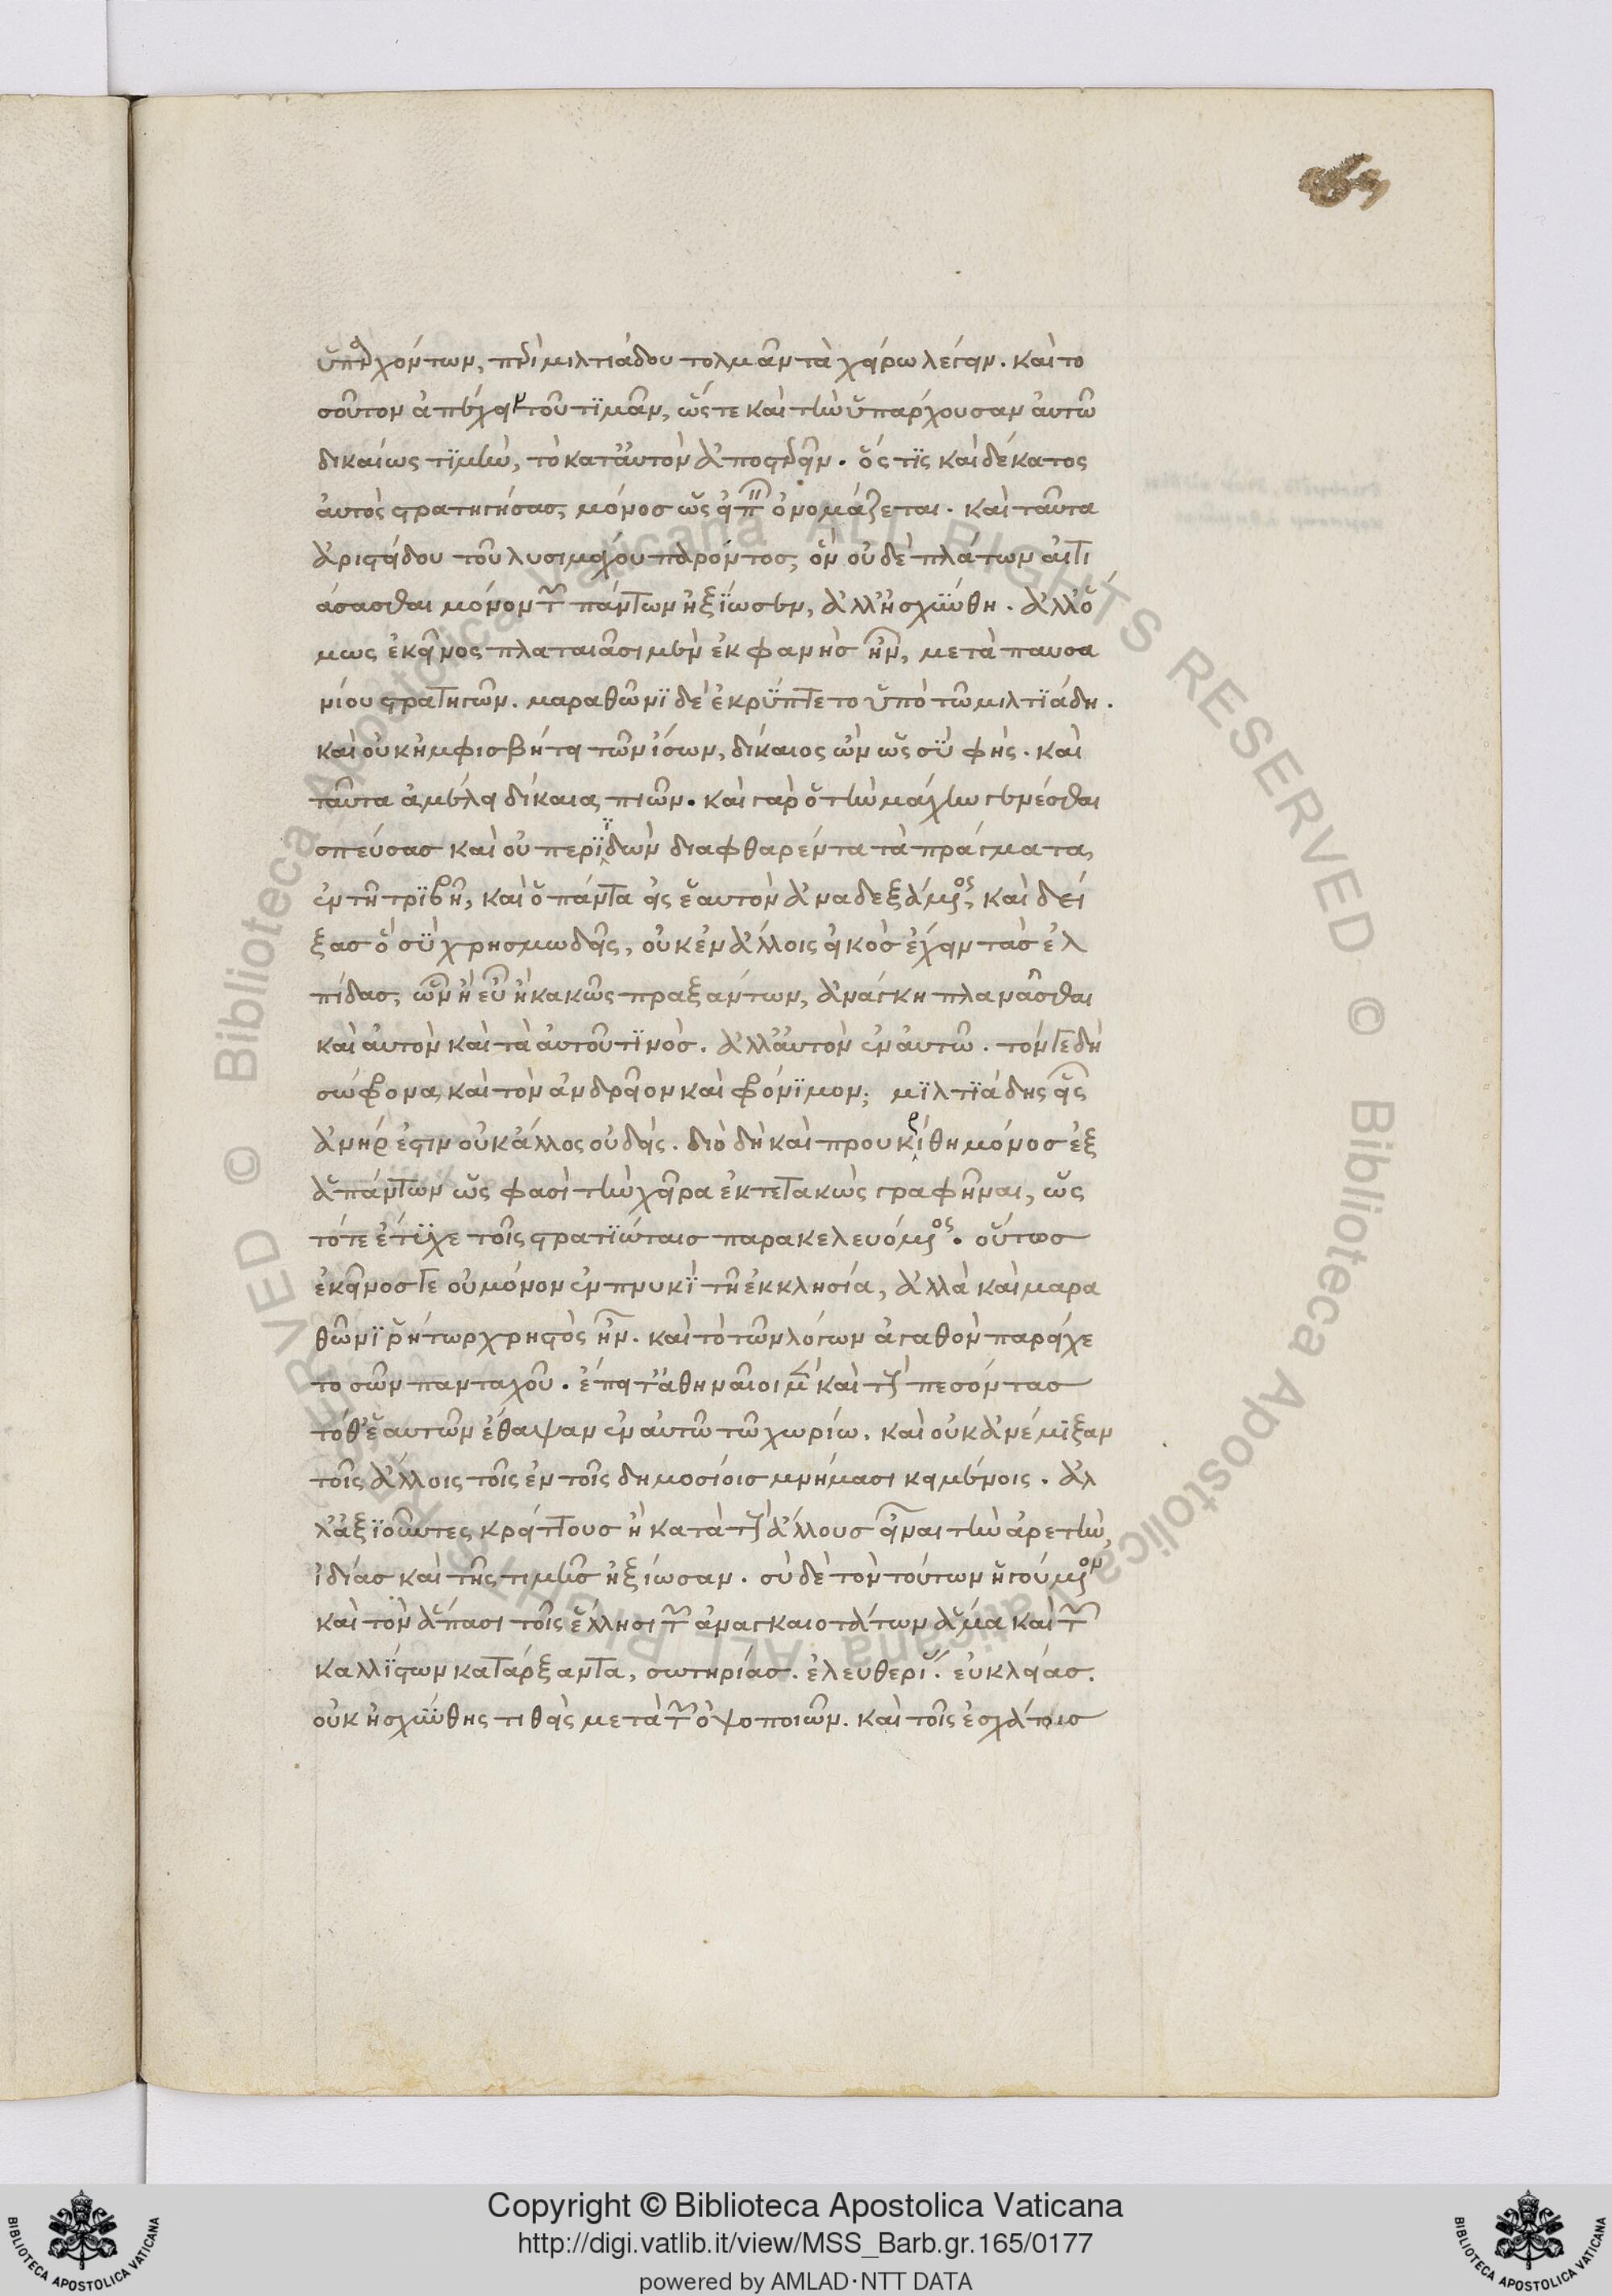 ὑπαρχόντων, περὶ μιλτιάδου τολμᾶν τὰ χείρω λέγειν. καὶ το
σοῦτον ἀπέχειν τοῦ τιμᾶν, ὥστε καὶ τὴν ὑπάρχουσαν αὐτῶ
δικαίως τιμὴν, τὸ κατ' αὐτὸν ἀποστερεῖν. ὅς τις καὶ δέκατος
αὐτὸς στρατηγήσας, μόνος ὡς εἰπεῖν ὀνομάζεται. καὶ ταῦτα
ἀριστείδου τοῦ λυσιμάχου παρόντος, ὃν οὐδὲ πλάτων αἰτι
άσασθαι μόνον τῶν πάντων ἠξίωσεν, ἀλλ' ἠσχύνθη. ἀλλ' ὅ
μως ἐκεῖνος πλαταιᾶσι μὲν ἐκφανὴς ἦν, μετὰ παυσα
νίου στρατηγῶν. μαραθῶνι δὲ ἐκρύπτετο ὑπὸ τῶ μιλτιάδη.
καὶ οὐκ ἠμφισβήτει τῶν ἴσων, δίκαιος ὢν ὡς σὺ φής. καὶ
ταῦτα ἀμέλει δίκαια ποιῶν. καὶ γὰρ ὁ τὴν μάχην γενέσθαι
σπεύσας καὶ οὐ περιϊδὼν διαφθαρέντα τὰ πράγματα,
ἐν τῆ τριβῆ, καὶ ὁ πάντα εἰς ἑαυτὸν ἀναδεξάμενος, καὶ δεί
ξας ὃ σὺ χρησμωδεῖς, οὐκ ἐν ἄλλοις εἰκὸς ἔχειν τὰς ἐλ
πίδας, ὧν ἢ εὖ ἢ κακῶς πραξάντων, ἀνάγκη πλανᾶσθαι
καὶ αὐτὸν καὶ τὰ αὐτοῦ τινός. ἀλλ' αὐτὸν ἐν αὐτῶ. τόν γε δὴ
σώφρονα καὶ τὸν ἀνδρεῖον καὶ φρόνιμον; μιλτιάδης εἷς
ἀνήρ ἐστιν οὐκ ἄλλος οὐδείς. διὸ δὴ καὶ προυκρίθη μόνος ἐξ
ἁπάντων ὥς φασὶ τὴν χεῖρα ἐκτετακὼς γραφῆναι, ὡς
τότε ἔτυχε τοῖς στρατιώταις παρακελευόμενος. οὕτως
ἐκεῖνός γε οὐ μόνον ἐν πνυκὶ τῆ ἐκκλησία, ἀλλὰ καὶ μαρα
θῶνι ῥήτωρ χρηστὸς ἦν. καὶ τὸ τῶν λόγων ἀγαθὸν παρείχε
το σῶν πανταχοῦ. ἐπεὶ τ' ἀθηναῖοι μὲν καὶ τοὺς πεσόντας
τόθ' ἑαυτῶν ἔθαψαν ἐν αὐτῶ τῶ χωρίω. καὶ οὐκ ἀνέμιξαν
τοῖς ἄλλοις τοῖς ἐν τοῖς δημοσίοις μνήμασι κειμένοις. ἀλ
λ' ἀξιοῦντες κρείττους ἢ κατὰ τοὺς ἄλλους εἶναι τὴν ἀρετὴν,
ἰδίας καὶ τῆς τιμῆς ἠξίωσαν. σὺ δὲ τὸν τούτων ἡγούμενον
καὶ τὸν ἅπασι τοῖς ἕλλησι τῶν ἀναγκαιοτάτων ἅμα καὶ τῶν
καλλίστων κατάρξαντα, σωτηρίας. ἐλευθερίας. εὐκλείας.
οὐκ ἠσχύνθης τιθεὶς μετὰ τῶν ὀψοποιῶν. καὶ τοῖς ἐσχάτοις
Copyright © Biblioteca Apostolica Vaticana
http://digi.vatlib.it/view/MSS_Barb.gr.165/0177
powered by AMLAD·NTT DATA